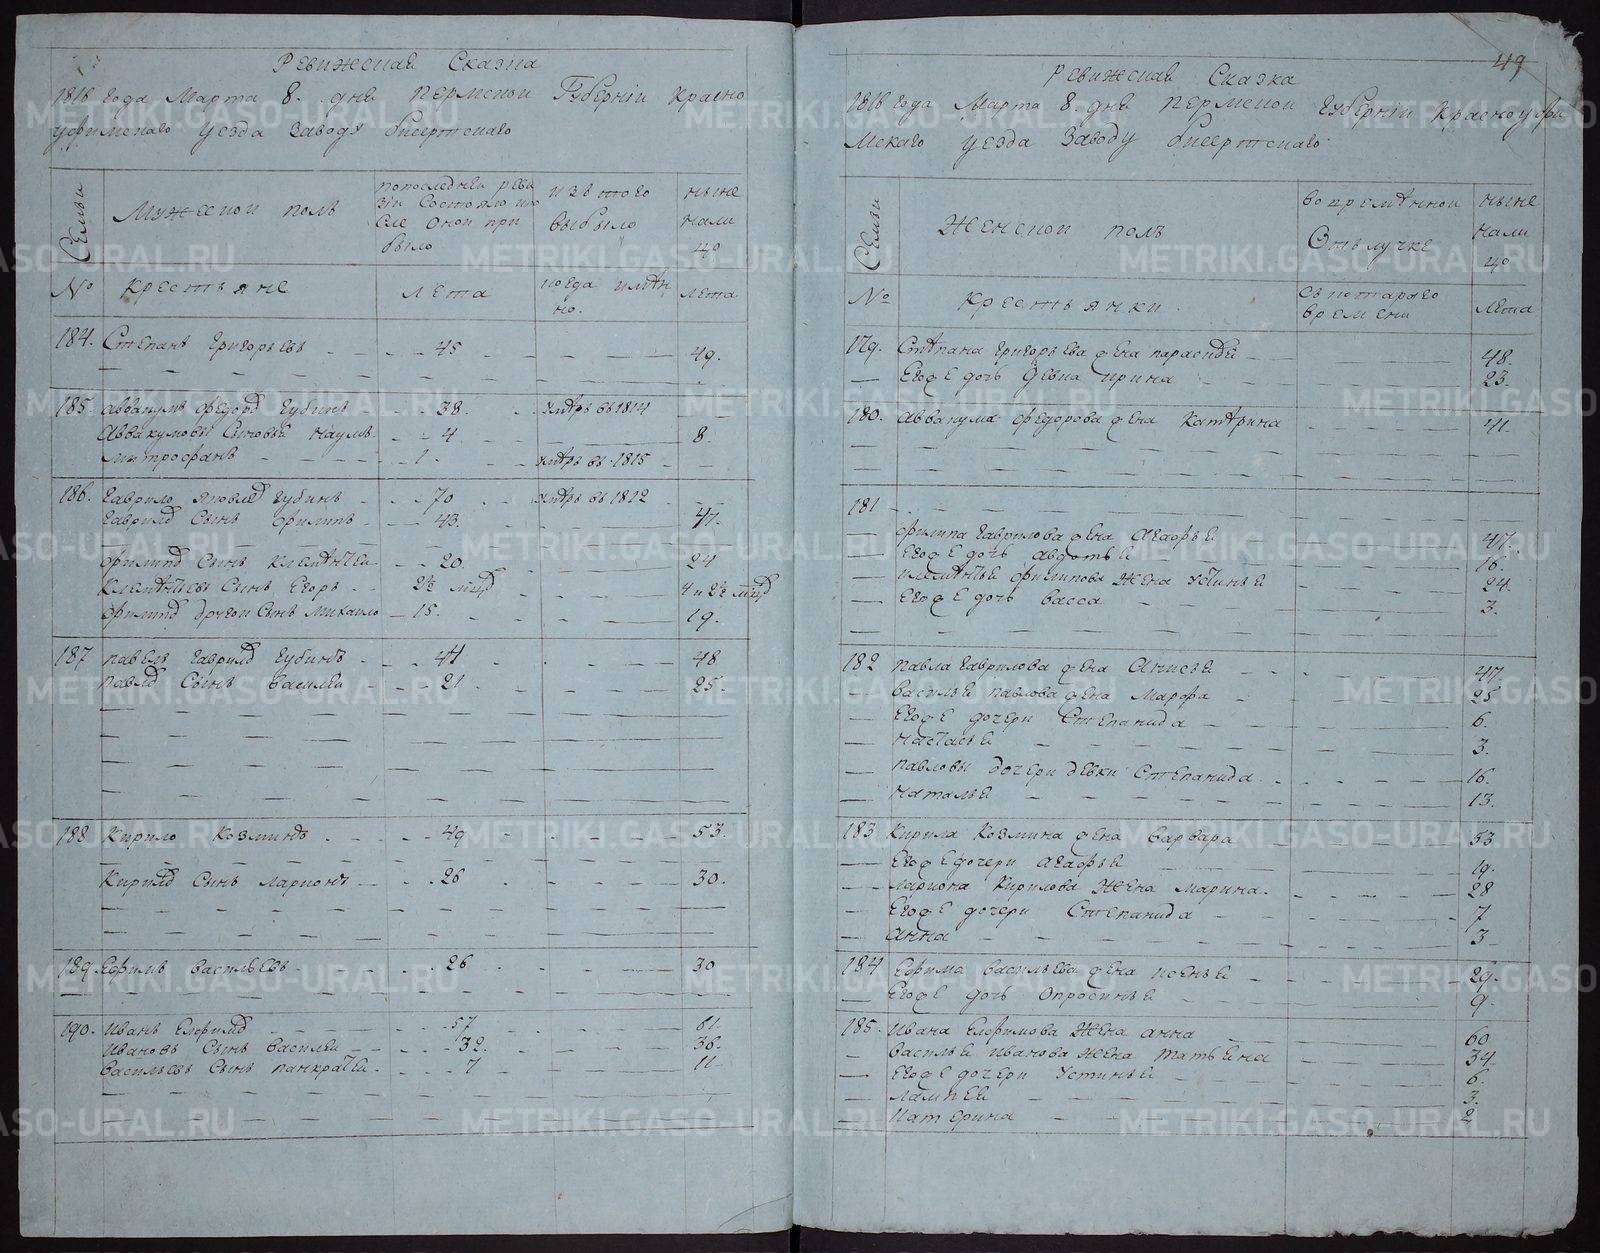 Ревижская Сказка
1816 года Марта 8. дня Пермской Губернїи Красно
уфимскаго уезда Заводу бисертскаго
Семьи
Мужеской полъ
попоследней реви
зїи Состояло ипо
сле оной при
было
изъ того
выбыло
ныне
нали
чо
№ крестьяне
лета
когда имян
но.
лета
184. Степанъ Григорьевъ 45 49.
185. аввакумъ федоровъ Губинъ 38. умѣръ въ 1814
Аввакумовы Сыновьй Наумъ 4 8.
митрофанъ 1. умѣръ въ 1815
186. Гаврило яковлевъ Губинъ 70 умѣръ въ 1812
Гаврилы Сынъ филипъ 43. 47.
филипа Сынъ Климѣнтей 20. 24
Климѣнтьевъ Сынъ Егоръ 2½ мѣц 4 и 2½ мѣц
филипа другой Сынъ Михаило 15. 19.
187 павелъ Гаврилов Губинъ 44 48
павла Сынъ василей 21 25.
188 Кирило Козминъ 49 53.
Кирила Сынъ Ларионъ 26 30.
189 Ефимъ васильевъ 26 30
190. Иванъ Елфимов 57 61.
Ивановъ Сынъ василей 32. 36.
васильевъ Сынъ панкратей 7 11
49
Ревижская Сказка
1816 года Марта 8. дня Пермской Губернїи Красноуфи
мскаго уезда Заводу бисертскаго
Семьи
Женской полъ
во времѧнной
Отълучке
ныне
нали
чо
№ крестьянки
съ котораго
времени
лета
179. Степана Григорьева жена парасковья 48.
Его же дочь девка ирина 23.
180. аввакума федорова жена Катерина 41
181
филипа Гаврилова жена агафья 47.
Его же дочь авдотья 16.
климѣнтья филипова жена устинья 24
Его же дочь васса 3.
182 павла Гаврилова жена Анисья 47.
василья павлова жена марфа 25
Его же дочери Степанида 6.
настасья 3.
павловы дочери девки Степанида 16.
наталья 13.
183 Кирила козмина жена варвара 53
Его же дочери агафья 19.
лариона Кирилова жена марина. 28
Его же дочери Степанида 7
анна 3
184 Ефима васильева жена ксенья 29.
Его же дочь опросинья 9.
185. Ивана Елфимова жена анна 60
василья иванова жена татьяна 34.
Его же дочери устинья 6.
лампея 3.
катерина 2
METRIKI.GASO-URAL.RU